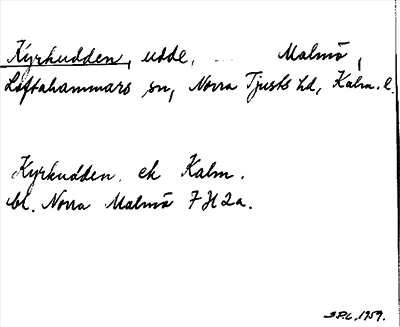 Kyrkudden, udde, ... Malmö,
Loftahammars sn, Norra Tjusts hd, Kalm. l.
Kyrkudden. ek Kalm.
bl. Norra Malmö 7H2a.
1959.